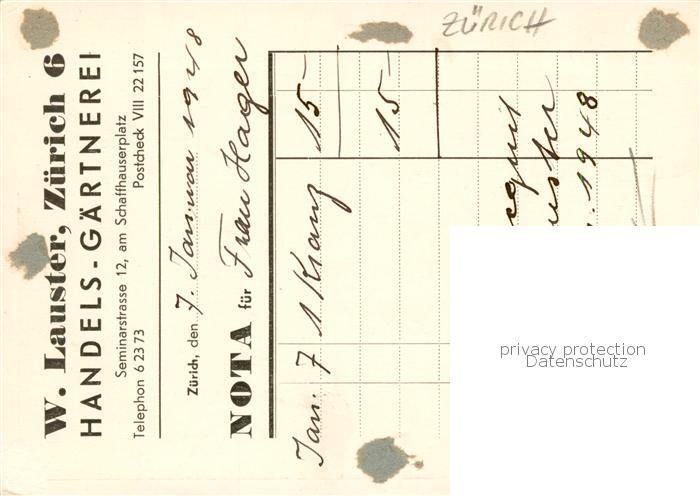 ZÜRICH
W. Lauster, Zürich 6
HANDELS-GÄRTNEREI
Seminarstrasse 12, am Schaffhauserplatz
Telephon 6 23 73 Postcheck VIII 22 157
Zürich, den 7. Januar 1948
NOTA für Frau Hager
Jan. 7 1 Kranz 15.—
15.—
1948
privacy protection
Datenschutz